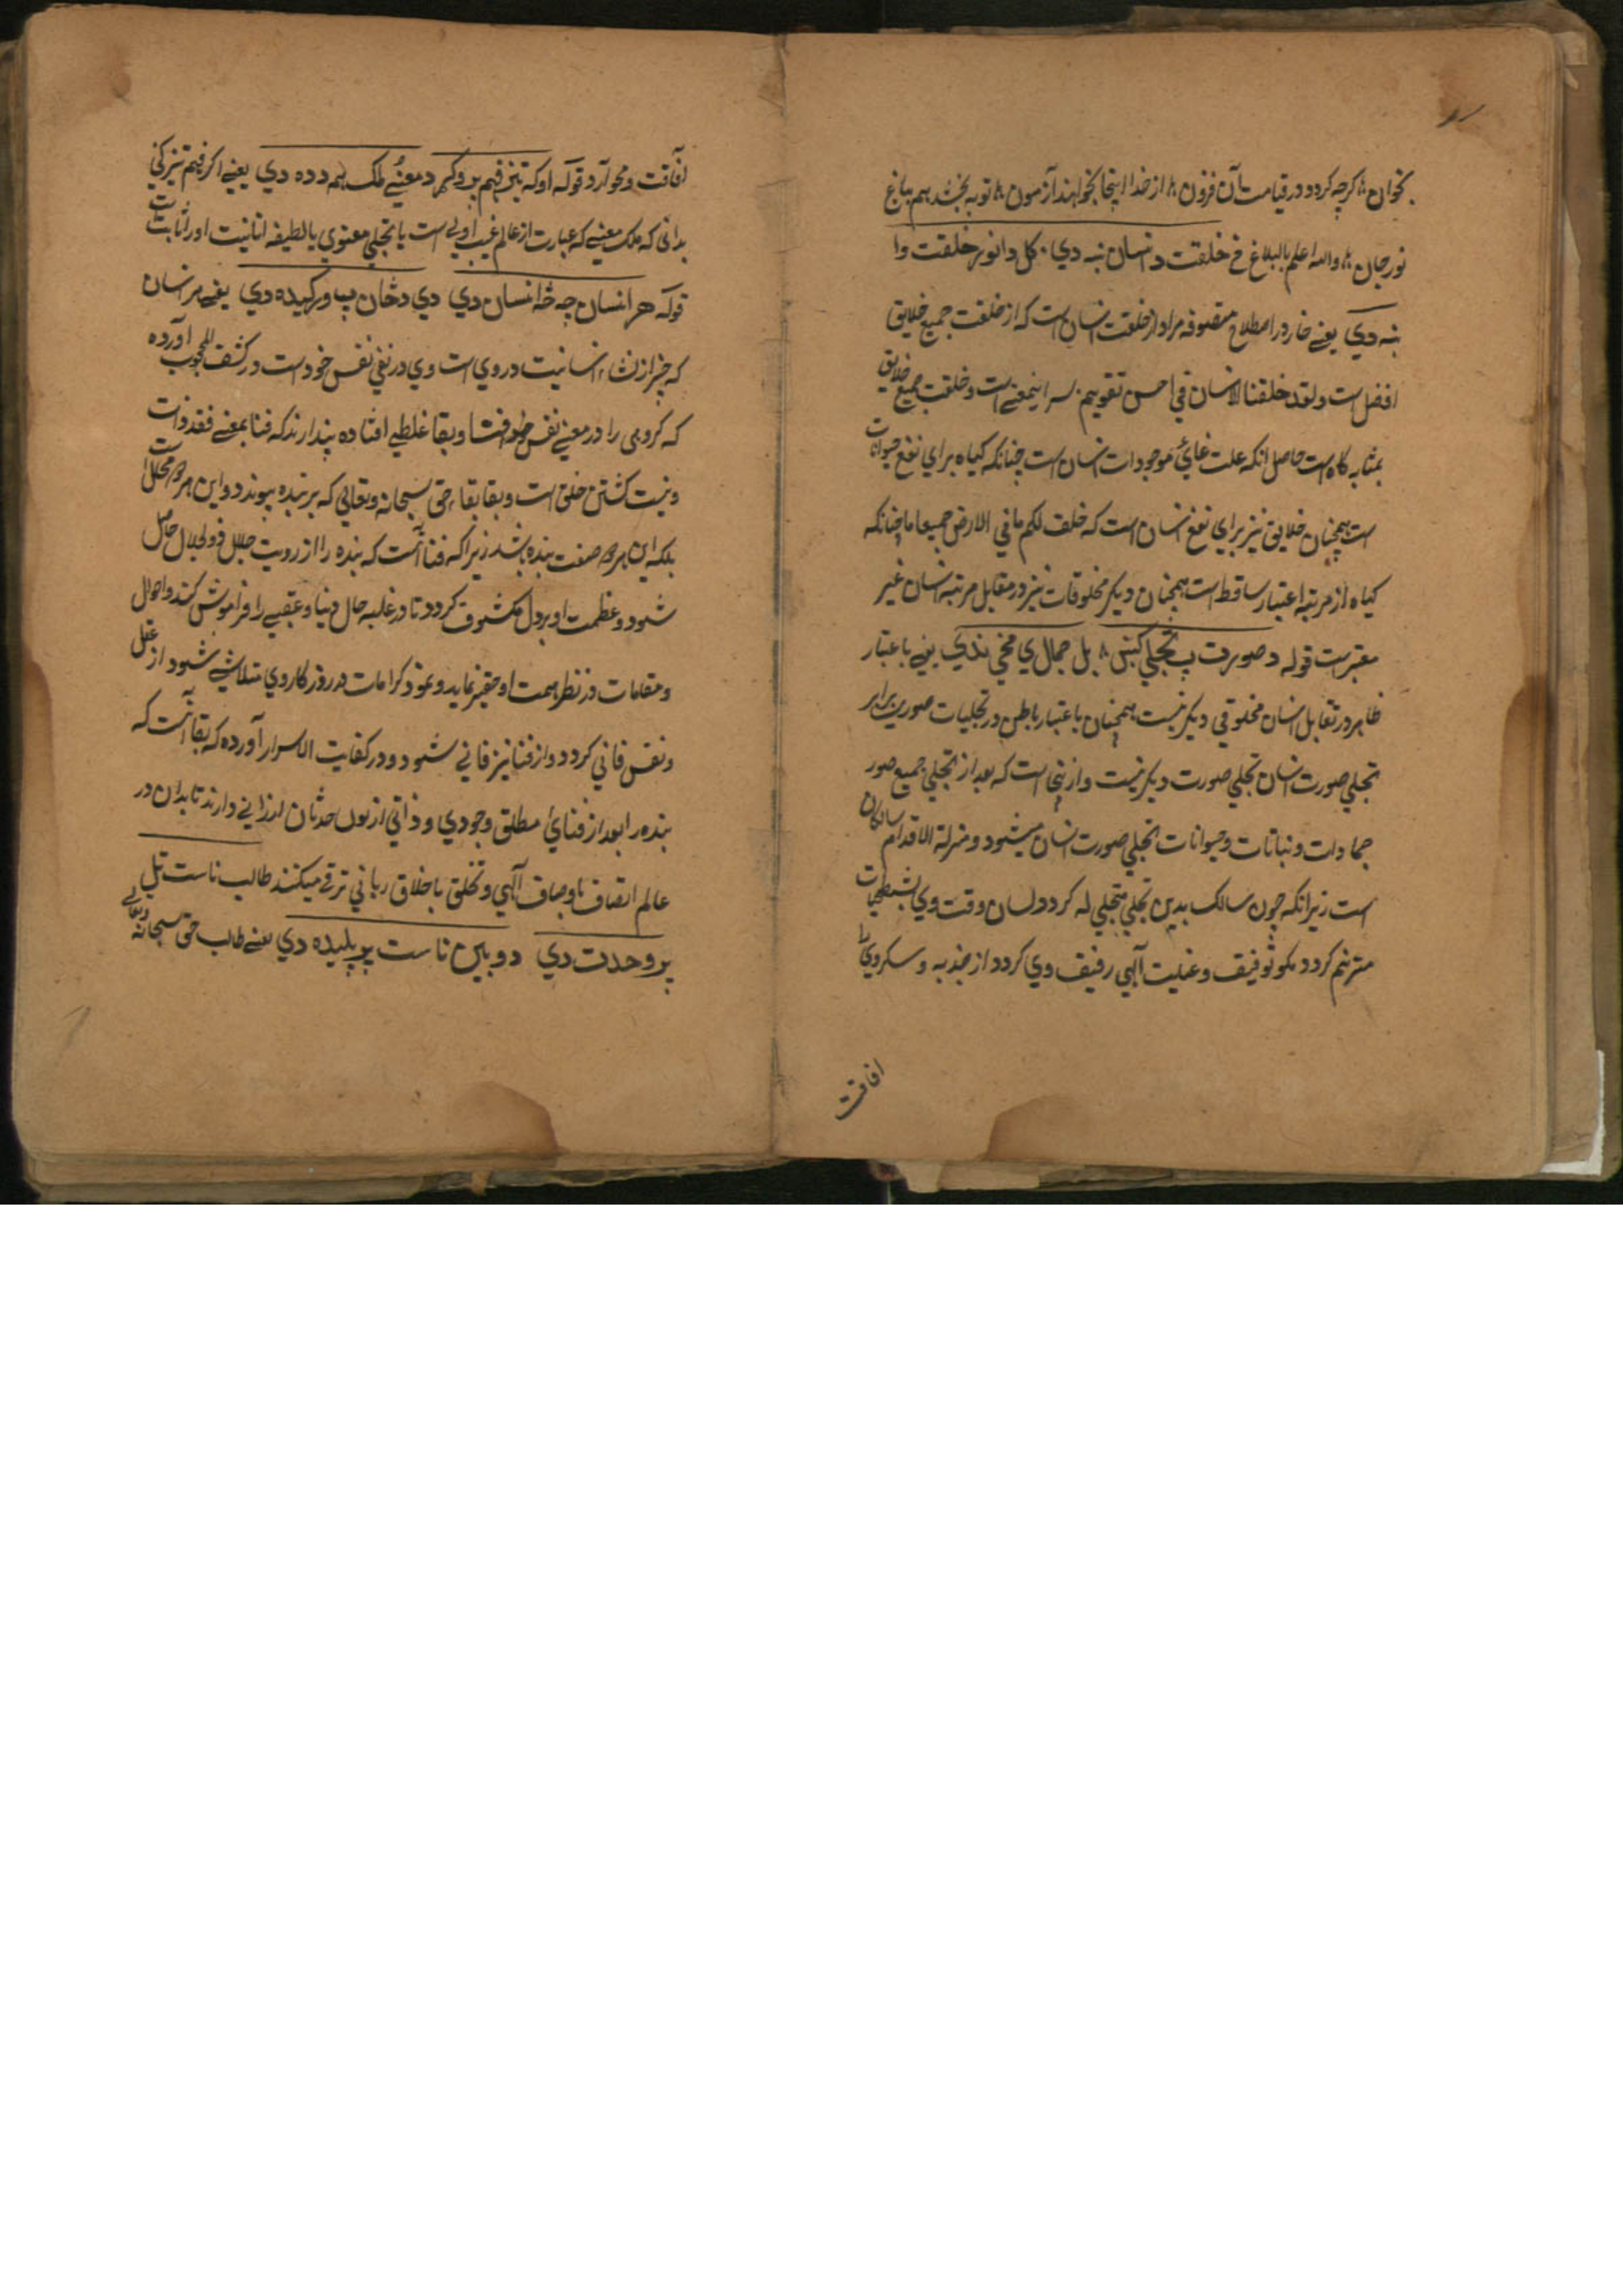 بخوان ۸ کرچه کردد در قیامت آن فزون ۸ از خدا اینجا بخواهند آزمون ۸ توبه بخشد بهم بباغ
نور جان ۸ والله اعلم بالبلاغ خلقت د انسان نبه دي کل دانور خلقت وا
نبه دي یعنے خار در اصطلاح متصوفه مراد از خلقت انسان است که از خلقت جمیع خلایق
افضل است ولقد خلقنا الانسان في احسن تقویم سر اینمعنے است و خلقت جمیع خلایق
بمثابه کاه است حاصل انکه علت غائي موجودات انسان است چنانکه کیاه براي نفع حیوانات
است همچنان خلایق نیز براي نفع انسان است که خلق لکم ما في الارض جمیعا اما چنانکه
کیاه از مرتبه اعتبار ساقط است همچنان دیکر مخلوقات نیز در مقابل مرتبه انسان غیر
معتبر ست قوله د صورت په تجلي کښ ۸ بل جمال ي مخي ندي یعنے باعتبار
ظاهر در تقابل انسان مخلوقي دیکر نیست همچنان باعتبار باطن در تجلیات صوري برابر
تجلي صورت انسان تجلي صورت دیکر نیست و ازینجا است که بعد از تجلي جمیع صور
جمادات و نباتات و حیوانات تجلي صورت انسان میشود و منزلة الاقدام سالکان
است زیرانکه چون سالک بدین تجلي متجلي له کردد لسان وقت وي بشطحیات
مترنم کردد مکو توفیق و عنایت آلهي رفیق وي کردد از جذبه و سکر وي را
افاقت
افاقت و محو آرد قوله او که تیز فهم پر وکړ د معنے ملک هم د ده دي یعنے اکر فهم تیز کني
بدانی که ملک معنے که عبارت از عالم غیب اولی است یا تجلي معنوي یا لطیفه انانیت او را ثابت است
قوله هر انسان چه څه انسان دي دي د ځان په ورکیده دي یعنے هر انسان
که چیز از نشاء انسانیت در وي است وي در نفي نفس خود است در کشف المحجوب آورده
که کروهي را در معنے نفس فنا و بقا غلطے افتاده پندارند که فنا بمعنے فقد ذات
و نیست کشتن خلق است و بقا بقاء حق سبحانه و تعالي که بر بنده پیوندد و این هر دو محال است
بلکه این هر دو صفت بنده باشد زیراکه فنا آنست که بنده را از رویت جلال ذو الجلال حاصل
شود و عظمت او بر دل مکشوف کردد تا در غلبه حال دنیا و عقبے را فراموش کند و احوال
و مقامات در نظر همت او حقیر نماید و نمود کرامات در روزکار وي متلاشے شود از عقل
و نفس فاني کردد و از فنا نیز فاني شود و در کفایت الاسرار آورده که بقا آنست که
بنده را بعد از فنائ مطلق وجودي و ذاتي از لوث حدثان ارزانے دارند تا بدان در
عالم اتصاف باوصاف آلهي و تخلق باخلاق رباني ترقے میکنند طالب ناست تل
پر وحدت دي دوبین ناست پر پلیده دي یعنے طالب حق سبحانه وتعالے